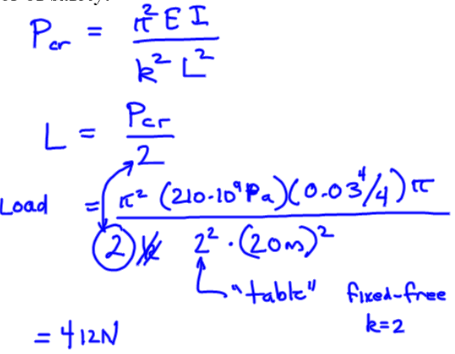 P_cr = π² E I / k² L²
L = P_cr / 2
Load = π² (210·10⁹ Pa)(0.03⁴/4) π / 2 2² · (20m)²
"table" fixed-free
k=2
= 412N